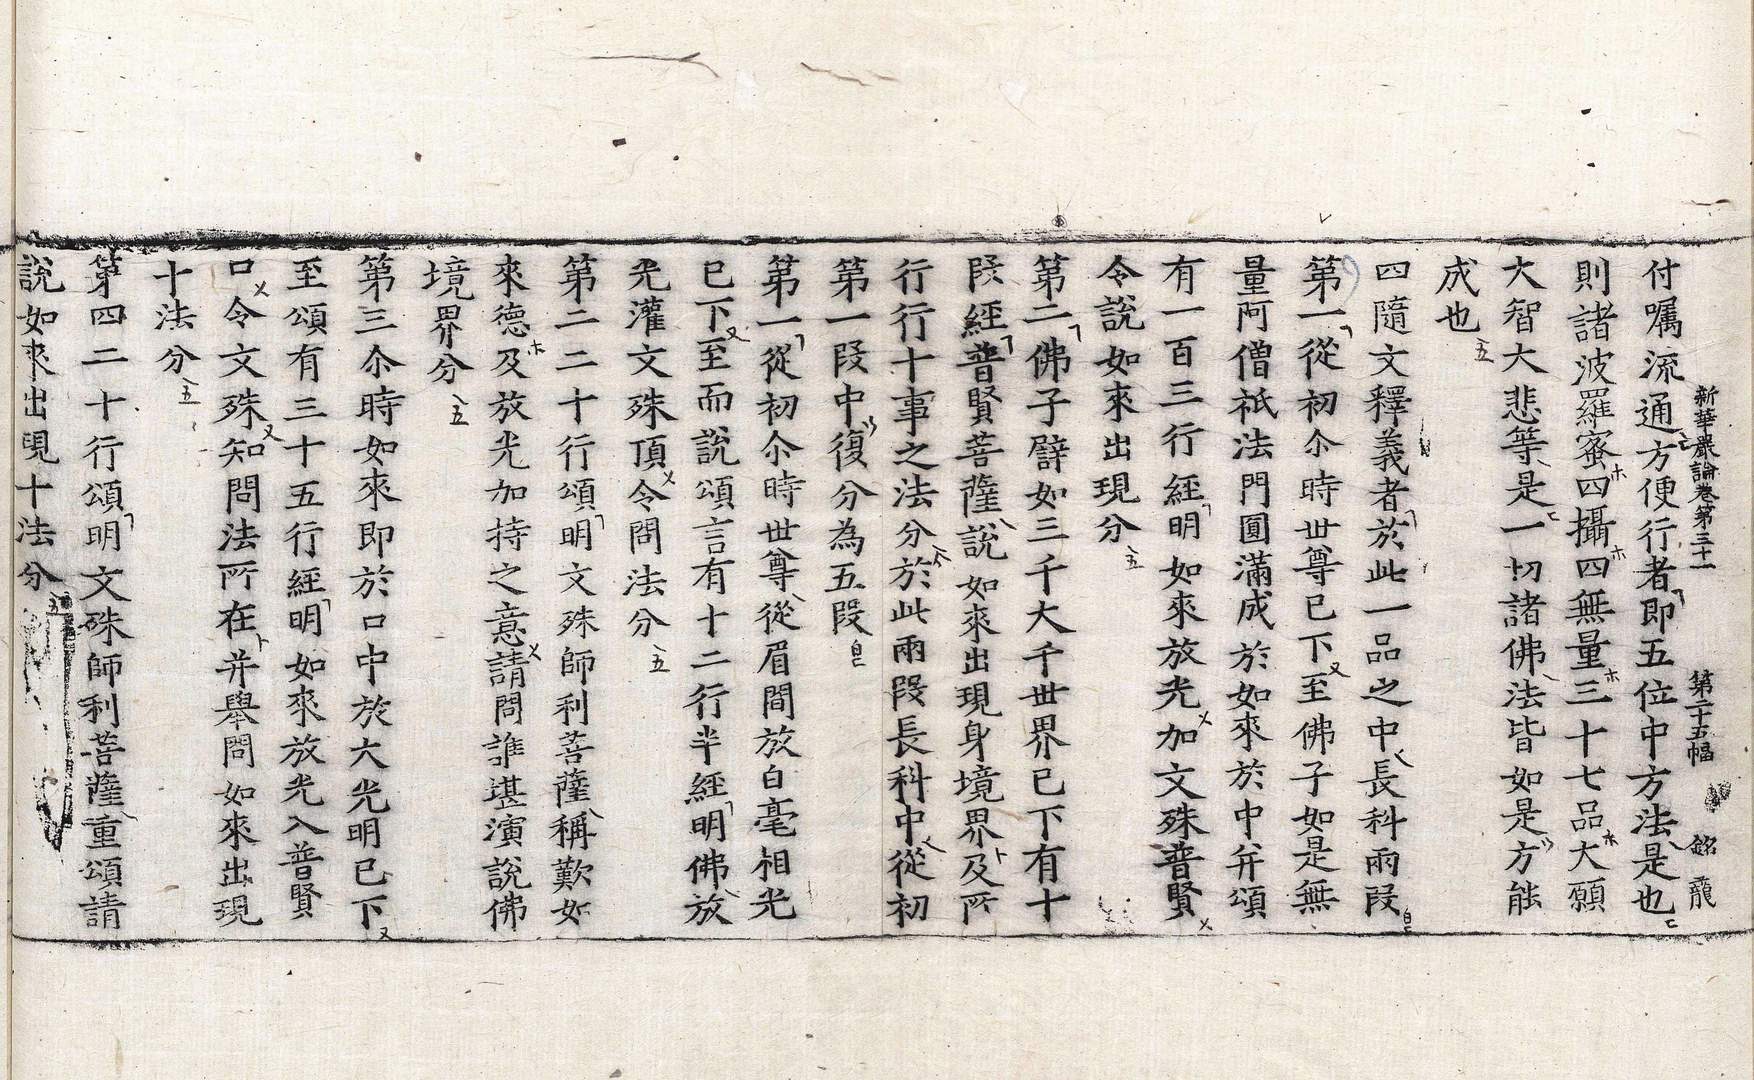 新華嚴論卷第三十一 第二十五幅 銘 龍
付囑流通方便行者即五位中方法是也
則諸波羅蜜四攝四無量三十七品大願
大智大悲等是一切諸佛法皆如是方能
成也
四隨文釋義者於此一品之中長科兩段
第一從初尒時世尊已下至佛子如是無
量阿僧祇法門圓滿成於如來於中并頌
有一百三行經明如來放光加文殊普賢
令說如來出現分
第二佛子譬如三千大千世界已下有十
段經普賢菩薩說如來出現身境界及所
行行十事之法分於此兩段長科中從初
第一段中復分為五段
第一從初尒時世尊從眉間放白毫相光
已下至而說頌言有十二行半經明佛放
光灌文殊頂令問法分
第二二十行頌明文殊師利菩薩稱歎如
來德及放光加持之意請問誰堪演說佛
境界分
第三尒時如來即於口中放大光明已下
至頌有三十五行經明如來放光入普賢
口令文殊知問法所在并舉問如來出現
十法分
第四二十行頌明文殊師利菩薩重頌請
說如來出現十法分